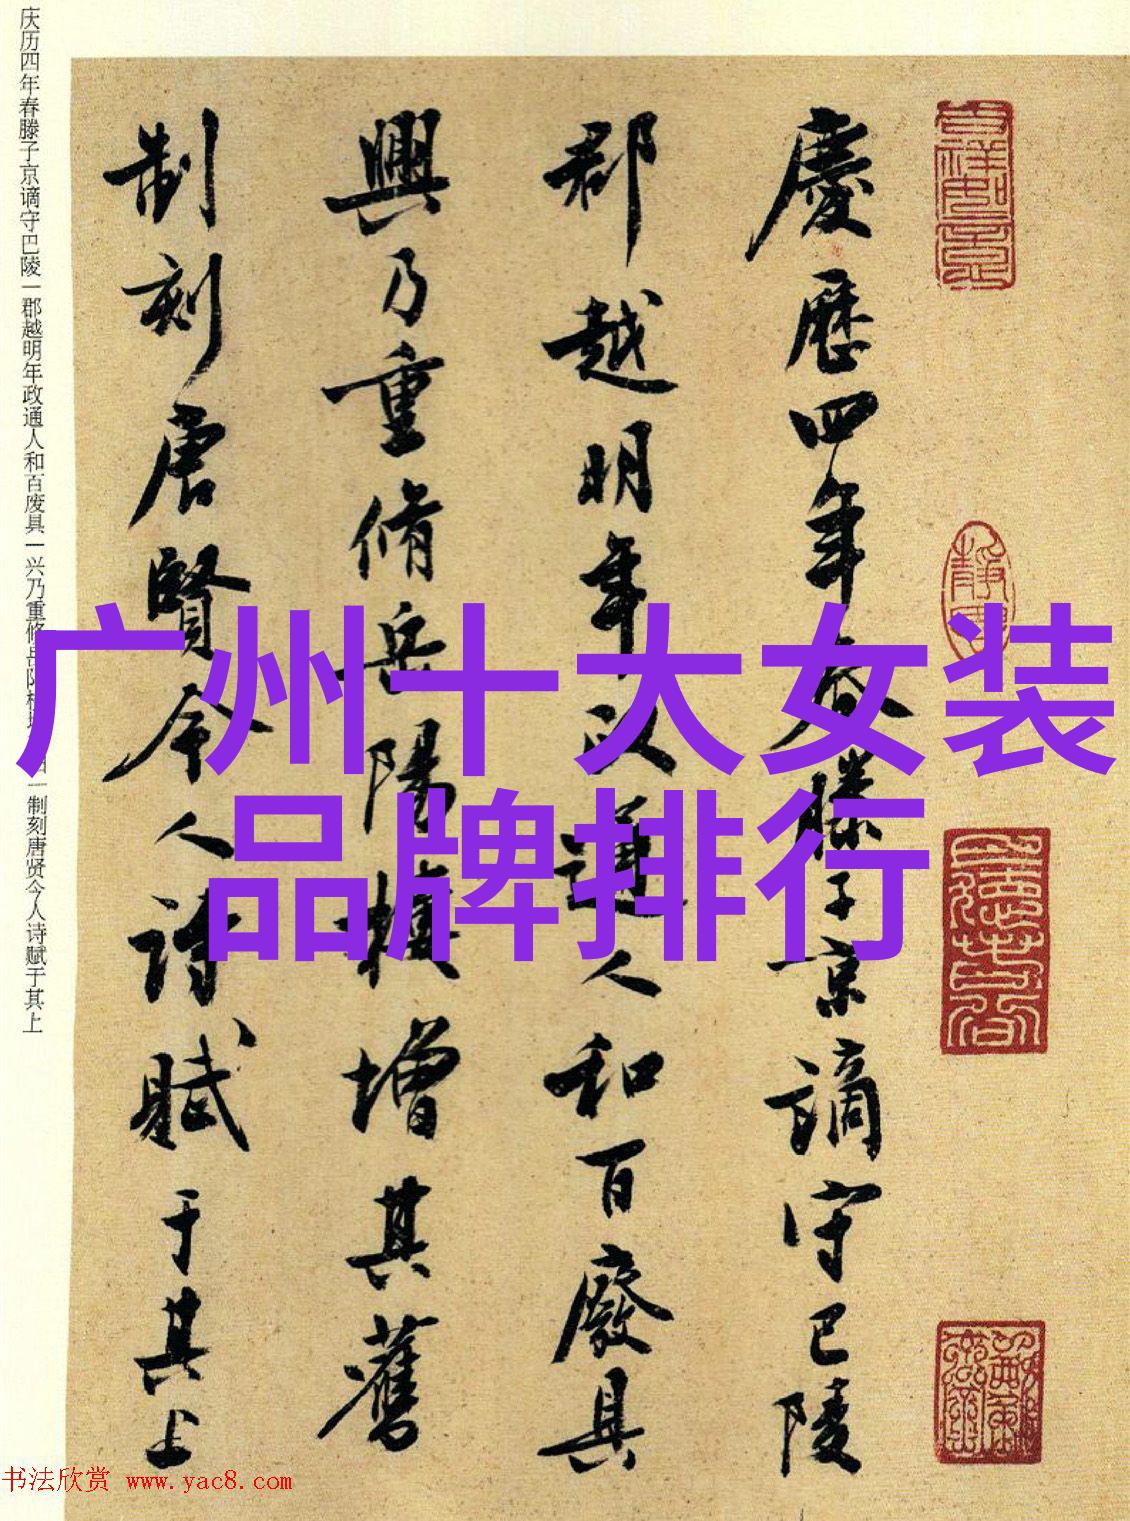 广州十大女装
品牌排行
慶歷四年春滕子京謫守巴陵
郡越明年政通人和百廢具
興乃重脩岳陽樓增其舊
制刻唐賢今人詩賦于其上
庆历四年春滕子京谪守巴陵一郡越明年政通人和百废具一兴乃重修岳阳楼 旧一制刻唐贤今人诗赋于其上
书法欣赏 www.yac8.com